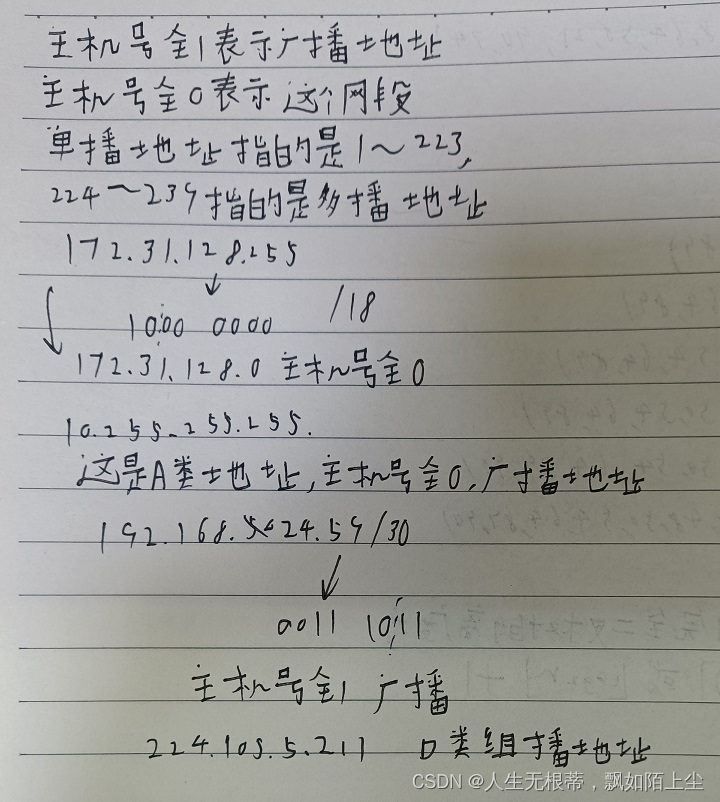 主机号全1表示广播地址
主机号全0表示这个网段
单播地址指的是1~223,
224~239指的是多播地址
172.31.128.255
/18
1000 0000
172.31.128.0 主机号全0
10.255.255.255.
这是A类地址,主机号全0,广播地址
192.168.24.59/30
0011 1011
主机号全1 广播
224.105.5.211 D类组播地址
CSDN @人生无根蒂，飘如陌上尘